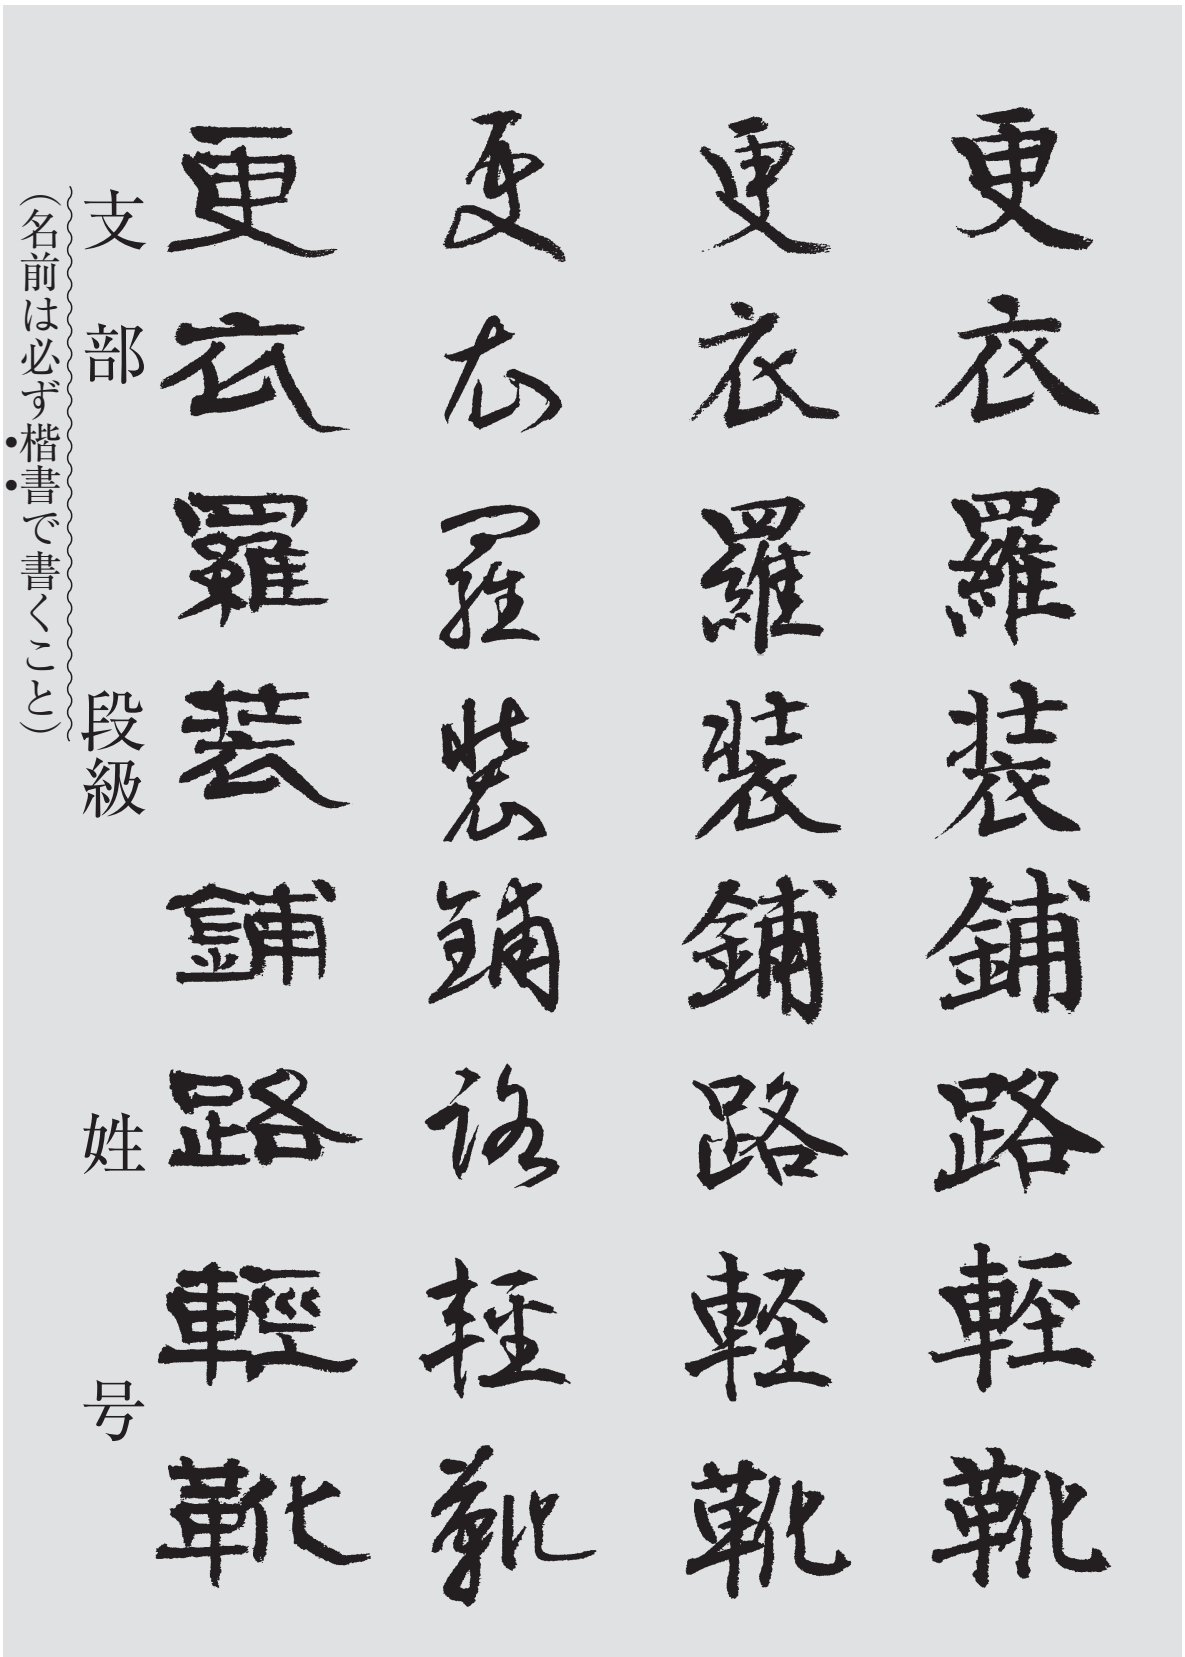 更衣羅装鋪路軽靴
更衣羅装鋪路軽靴
更衣羅装鋪路軽靴
更衣羅装鋪路輕靴
支部　段級　姓　号
（名前は必ず楷書で書くこと）